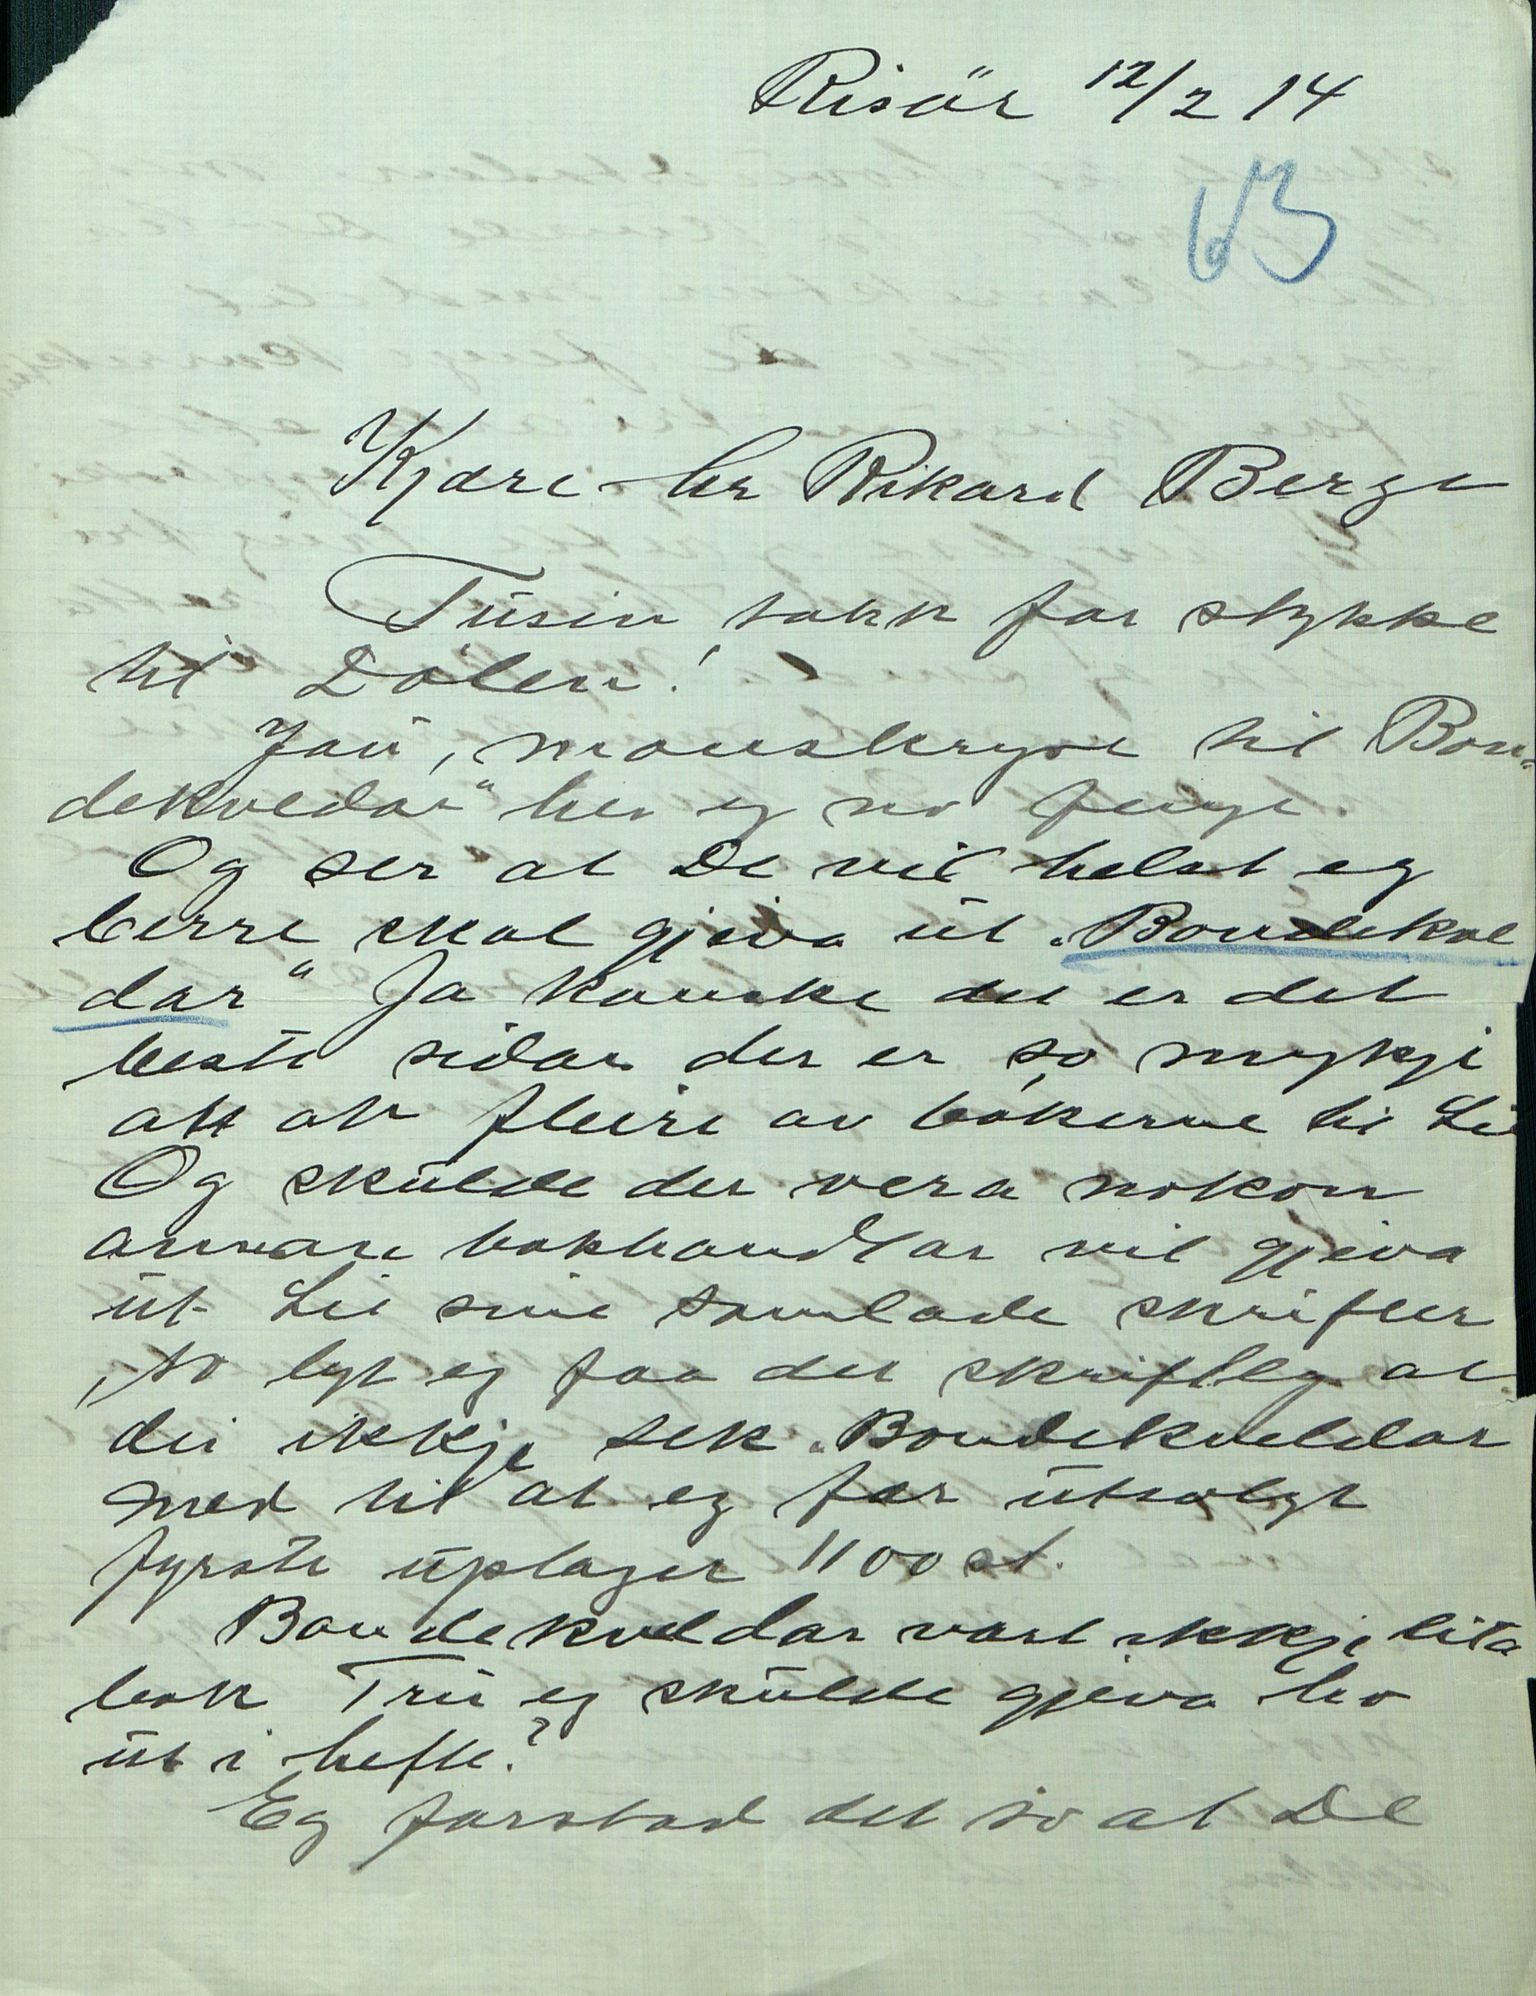 Risör 12/2 14
63
Kjære hr Rikard Berge
Tusin takk for stykke
til Dølen!
Jau, manuskryve til "Bon-
dekvedar" hev eg no fenge.
Og ser at De vil helst eg
berre skal gjeva ut "Bondekve
dar" Ja kanske det er det
beste sidan der er so mykje
att av fleire av bøkerne til Lie
Og skulde der vera nokon
annan bokhandlar vil gjeva
ut Lie sine samlade skrifter
so lyt eg faa det skriftleg at
dei ikkje tek "Bondekveldar
med til at eg fær utsolgt
fyrste uplaget 1100 st.
Bondekveldar vart ikkje lita
bok Tru eg skulde gjeva ho
ut i hefte?
Eg forstod det so at De